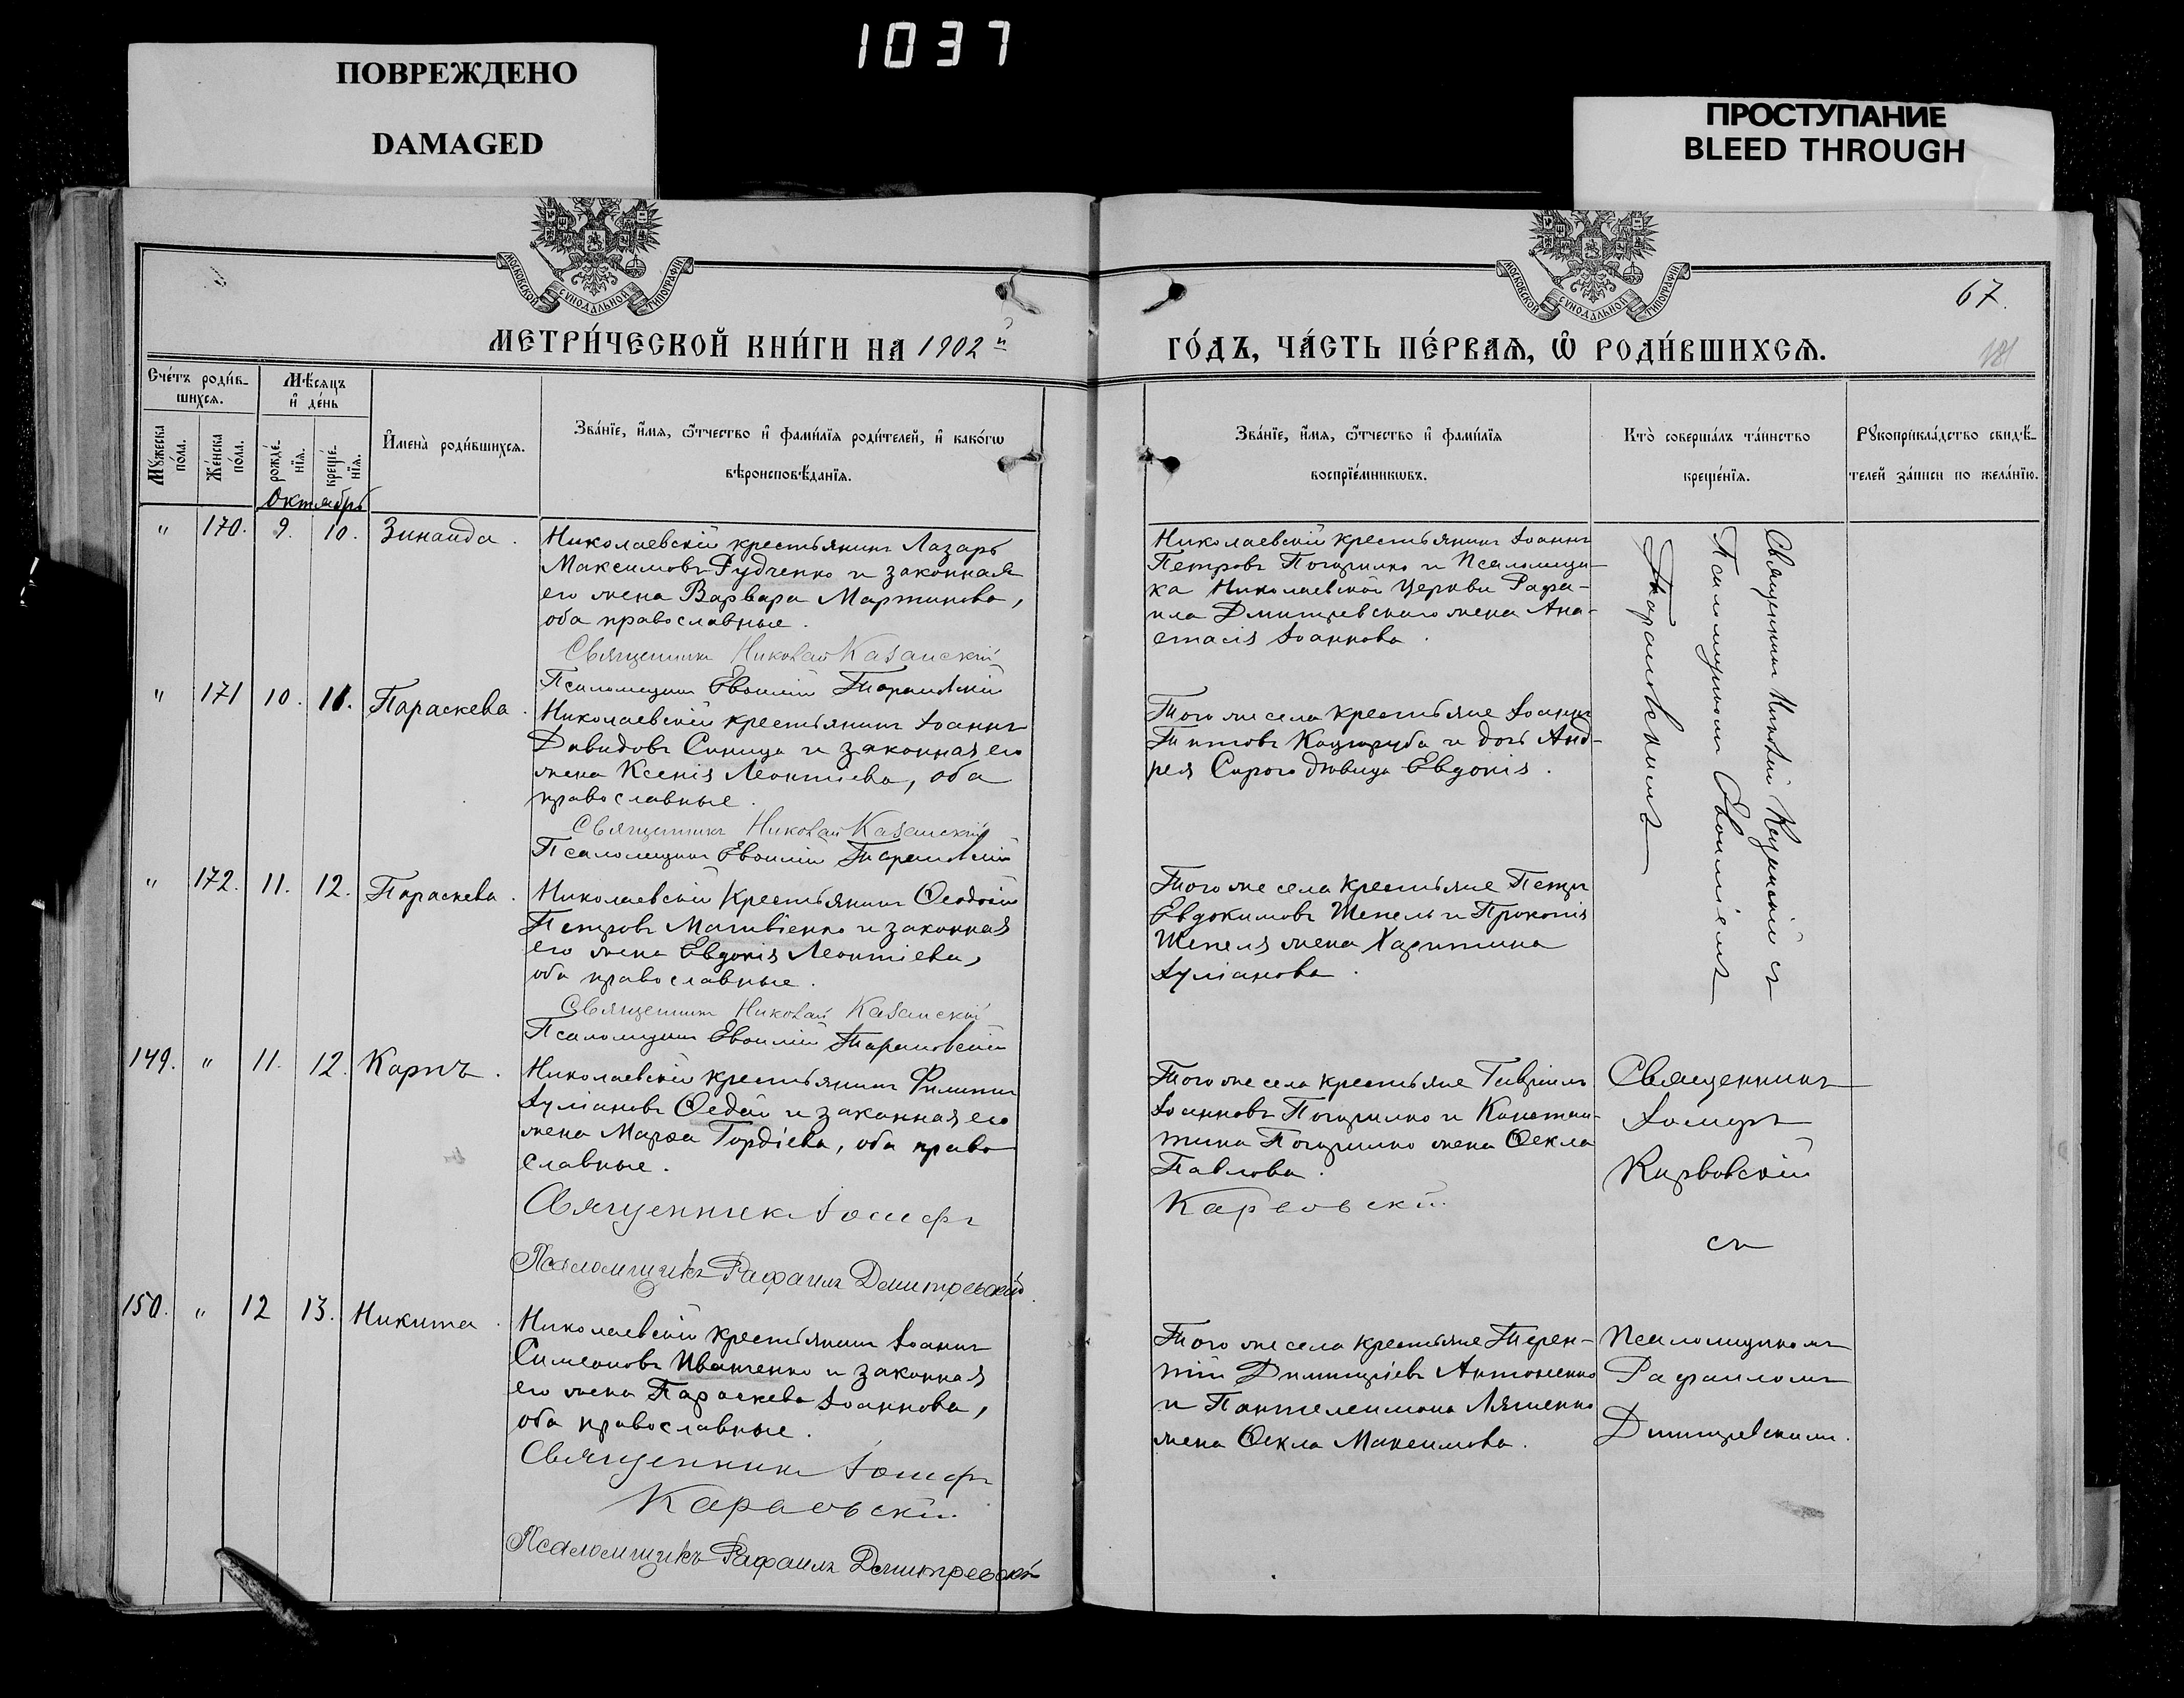 1037
ПОВРЕЖДЕНО
DAMAGED
ПРОСТУПАНИЕ
BLEED THROUGH
МОСКОВСКОЙ СѴНОДАЛЬНОЙ ТИПОГРАФІИ
МОСКОВСКОЙ СѴНОДАЛЬНОЙ ТИПОГРАФІИ
67.
181
МЕТРИ́ЧЕСКОЙ КНИ́ГИ НА 1902й
ГО́ДЪ, ЧА́СТЬ ПЕ́РВАЯ, Ѡ РОДИ́ВШИХСЯ.
Сче́тъ роди́в-
шихся.
Мѣ́сяцъ
и де́нь
Му́жеска
по́ла.
Же́нска
по́ла.
рожде́-
нїя.
креще́-
нїя.
Имена̀ роди́вшихся.
Зва́нїе, и́мя, ѻ́тчество и фами́лїя роди́телей, и како́гѡ
вѣроисповѣ́данїя.
Зва́нїе, и́мя, ѻ́тчество и фами́лїя
воспрїе́мникѡвъ.
Кто̀ соверша́лъ та́инство
креще́нїя.
Рꙋкоприкла́дство свидѣ́-
телей за́писи по жела́нїю.
Октябрь
" 170. 9. 10. Зинаида.
Николаевскій крестьянинъ Лазарь
Максимовъ Рудченко и законная
его жена Варвара Мартинова,
оба православные.
Священникъ Николай Казанскій
Псаломщикъ Евѳимій Тарановскій
Николаевскій крестьянинъ Іоаннъ
Петровъ Погорилко и Псаломщи-
ка Николаевской церкви Рафа-
ила Дмитревскаго жена Ана-
стасія Іоаннова.
Священникъ Николай Казанскій съ
Псаломщикомъ Евѳиміемъ
Тарановскимъ
" 171 10. 11. Параскева.
Николаевскій крестьянинъ Іоаннъ
Давидовъ Синица и законная его
жена Ксенія Леонтіева, оба
православные.
Священникъ Николай Казанскій
Псаломщикъ Евѳимій Тарановскій
Того же села крестьяне Іоаннъ
Титовъ Коцюруба и дочь Анд-
рея Сирого дѣвица Евдокія.
" 172. 11. 12. Параскева.
Николаевскій крестьянинъ Ѳеодосій
Петровъ Матвіенко и законная
его жена Евдокія Леонтіева,
оба православные.
Священникъ Николай Казанскій
Псаломщикъ Евѳимій Тарановскій
Того же села крестьяне Петръ
Евдокимовъ Шепель и Прокопія
Шепеля жена Харитина
Іуліанова.
149. " 11. 12. Карпъ.
Николаевскій крестьянинъ Филиппъ
Іуліановъ Ѳедай и законная его
жена Марѳа Гордіева, оба право
славные.
Священникъ Іосифъ
Псаломщикъ Рафаилъ Дмитревскій.
Того же села крестьяне Гавріилъ
Іоанновъ Погорилко и Констан-
тина Погорилко жена Ѳекла
Павлова.
Карвовскій.
Священникъ
Іосифъ
Карвовскій
съ
150. " 12 13. Никита.
Николаевскій крестьянинъ Іоаннъ
Симеоновъ Иващенко и законная
его жена Параскева Іоаннова,
оба православные.
Священникъ Іосифъ
Карвовскій.
Псаломщикъ Рафаилъ Дмитревскій
Того же села крестьяне Терен-
тій Димитріевъ Антоненко
и Пантелеимона Ляшенко
жена Ѳекла Максимова.
Псаломщикомъ
Рафаиломъ
Дмитревскимъ.